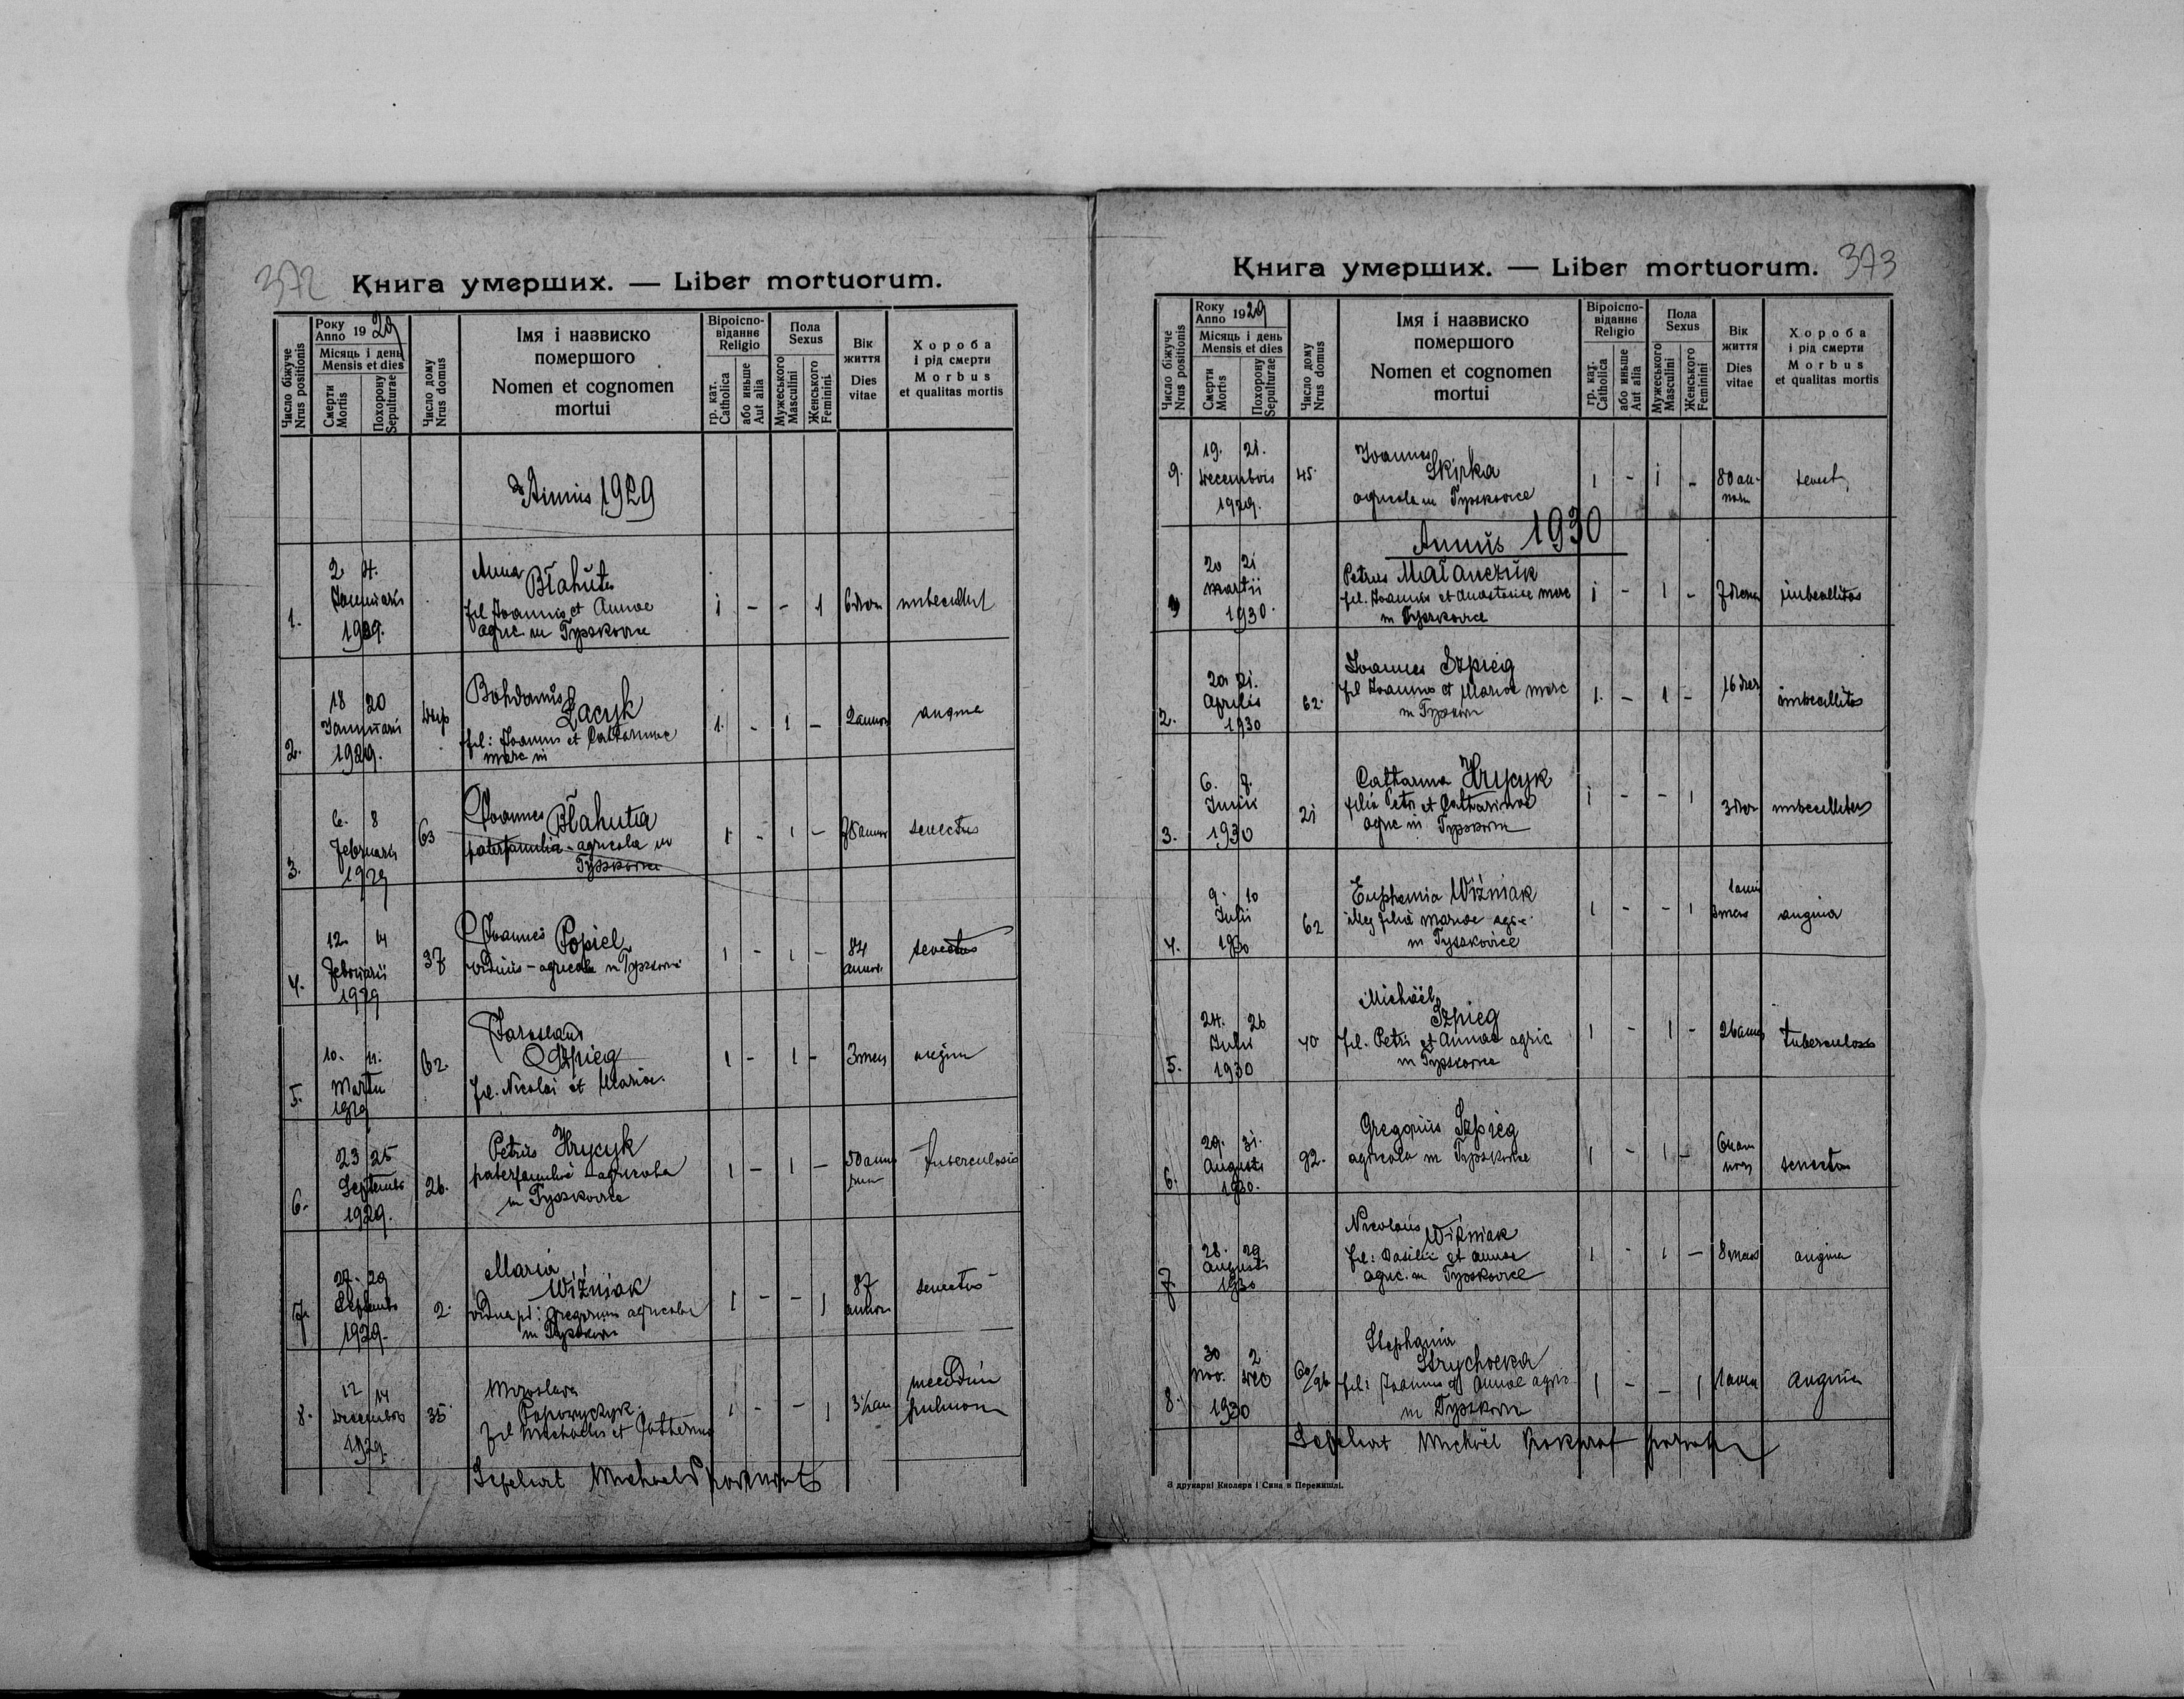 372
Книга умерших. — Liber mortuorum.
Число біжуче
Nrus positionis
Року
Anno 1929
Місяць і день
Mensis et dies
Смерти
Mortis
Похорону
Sepulturae
Число дому
Nrus domus
Імя і назвиско
помершого
Nomen et cognomen
mortui
Віроіспо-
віданнє
Religio
гр. кат.
Catholica
або иньше
Aut alia
Пола
Sexus
Мужеського
Masculini
Женського
Feminini
Вік
життя
Dies
vitae
Хороба
і рід смерти
Morbus
et qualitas mortis
Annus 1929
1. 2 4. Januarii 1929.
Anna
Błahuta
fil Joannis et Annae
agric in Tyszkowice
1 - - 1
imbecillit
2. 18 20 Januarii 1929.
Bohdanus
Łacyk
fil: Joannis et Catharinae
merc in
1. - 1 -
2 annor
angina
3. 6. 8 Februarii 1929
63
Joannes Błahuta
paterfamilia - agricola in
Tyszkowice
1 - 1 -
senectus
4. 12. 14 Februarii 1929
37
Joannes Popiel
viduus - agricola in Tyszkowice
1 - 1 -
84
annor.
senectus
5. 10. 11. Martii 1929
62.
Jaroslaus
Szpieg
fil. Nicolai et Mariae.
1 - 1 -
3 mens
angina
6. 23 25 Septembr 1929.
26.
Petrus Hrycyk
paterfamilias agricola
in Tyszkowice
1 - 1 -
50 annor
tuberculosis
7. 27. 29 Septembr 1929.
2.
Maria
Wiżniak
vidua p: Gregorium agricola
in Tyszkowice
1 - - 1
87
annor
senectus
8. 12 14 Decembris 1929.
35
Miroslava
Popowyczyk
fil Michaelis et Catharinae
1 - - 1
pulmon
Michael
373
Книга умерших. — Liber mortuorum.
Число біжуче
Nrus positionis
Року
Anno 1929
Місяць і день
Mensis et dies
Смерти
Mortis
Похорону
Sepulturae
Число дому
Nrus domus
Імя і назвиско
помершого
Nomen et cognomen
mortui
Віроіспо-
віданнє
Religio
гр. кат.
Catholica
або иньше
Aut alia
Пола
Sexus
Мужеського
Masculini
Женського
Feminini
Вік
життя
Dies
vitae
Хороба
і рід смерти
Morbus
et qualitas mortis
9. 19. 21. Decembris 1929.
45.
Joannes
Skirka
agricola in Tyszkowice
1 - 1 -
80 an-
norum
senect.
Annus 1930
20 21 Martii 1930.
Petrus Małanczuk
fil. Joannis et Anastasiae merc
in Tyszkowice
1 - 1 -
7 dierum
imbecillitas
2. 20. 21. Aprilis 1930
62.
Joannes Szpieg
fil Joannis et Mariae merc
in Tyszkow
1. - 1 -
16 dier
imbecillitas
3. 6. 7. Junii 1930
21
Catharina Hrycyk
filia Petri et Catharinae
agric in Tyszkowice
1 - - 1
3 dier
imbecillitas
4. 9. 10 Julii 1930
62
Euphemia Wiżniak
illeg filia Mariae agric.
in Tyszkovice
1 - - 1
angina
5. 24. 26 Julii 1930
40
Michaël
Szpieg
fil. Petri et Annae agric
in Tyszkowice
1 - 1 -
26 annor
tuberculosis
6. 29. 31. Augusti 1930.
92.
Gregorius Szpieg
agricola in Tyszkowice
1 - 1 -
senectus
7. 28. 29 Augusti 1930
Nicolaus
Wiżniak
fil: Basilii et Annae
agric. in Tyszkowice
1 - 1 -
8 mens
angina
8. 30 2 Nov. Dec 1930
Stephania
Strychocka
fil: Joannis et Annae agric
in Tyszkowice
1 - - 1
angina
Michaël
З друкарні Кнолєра і Сина в Перемишлі.